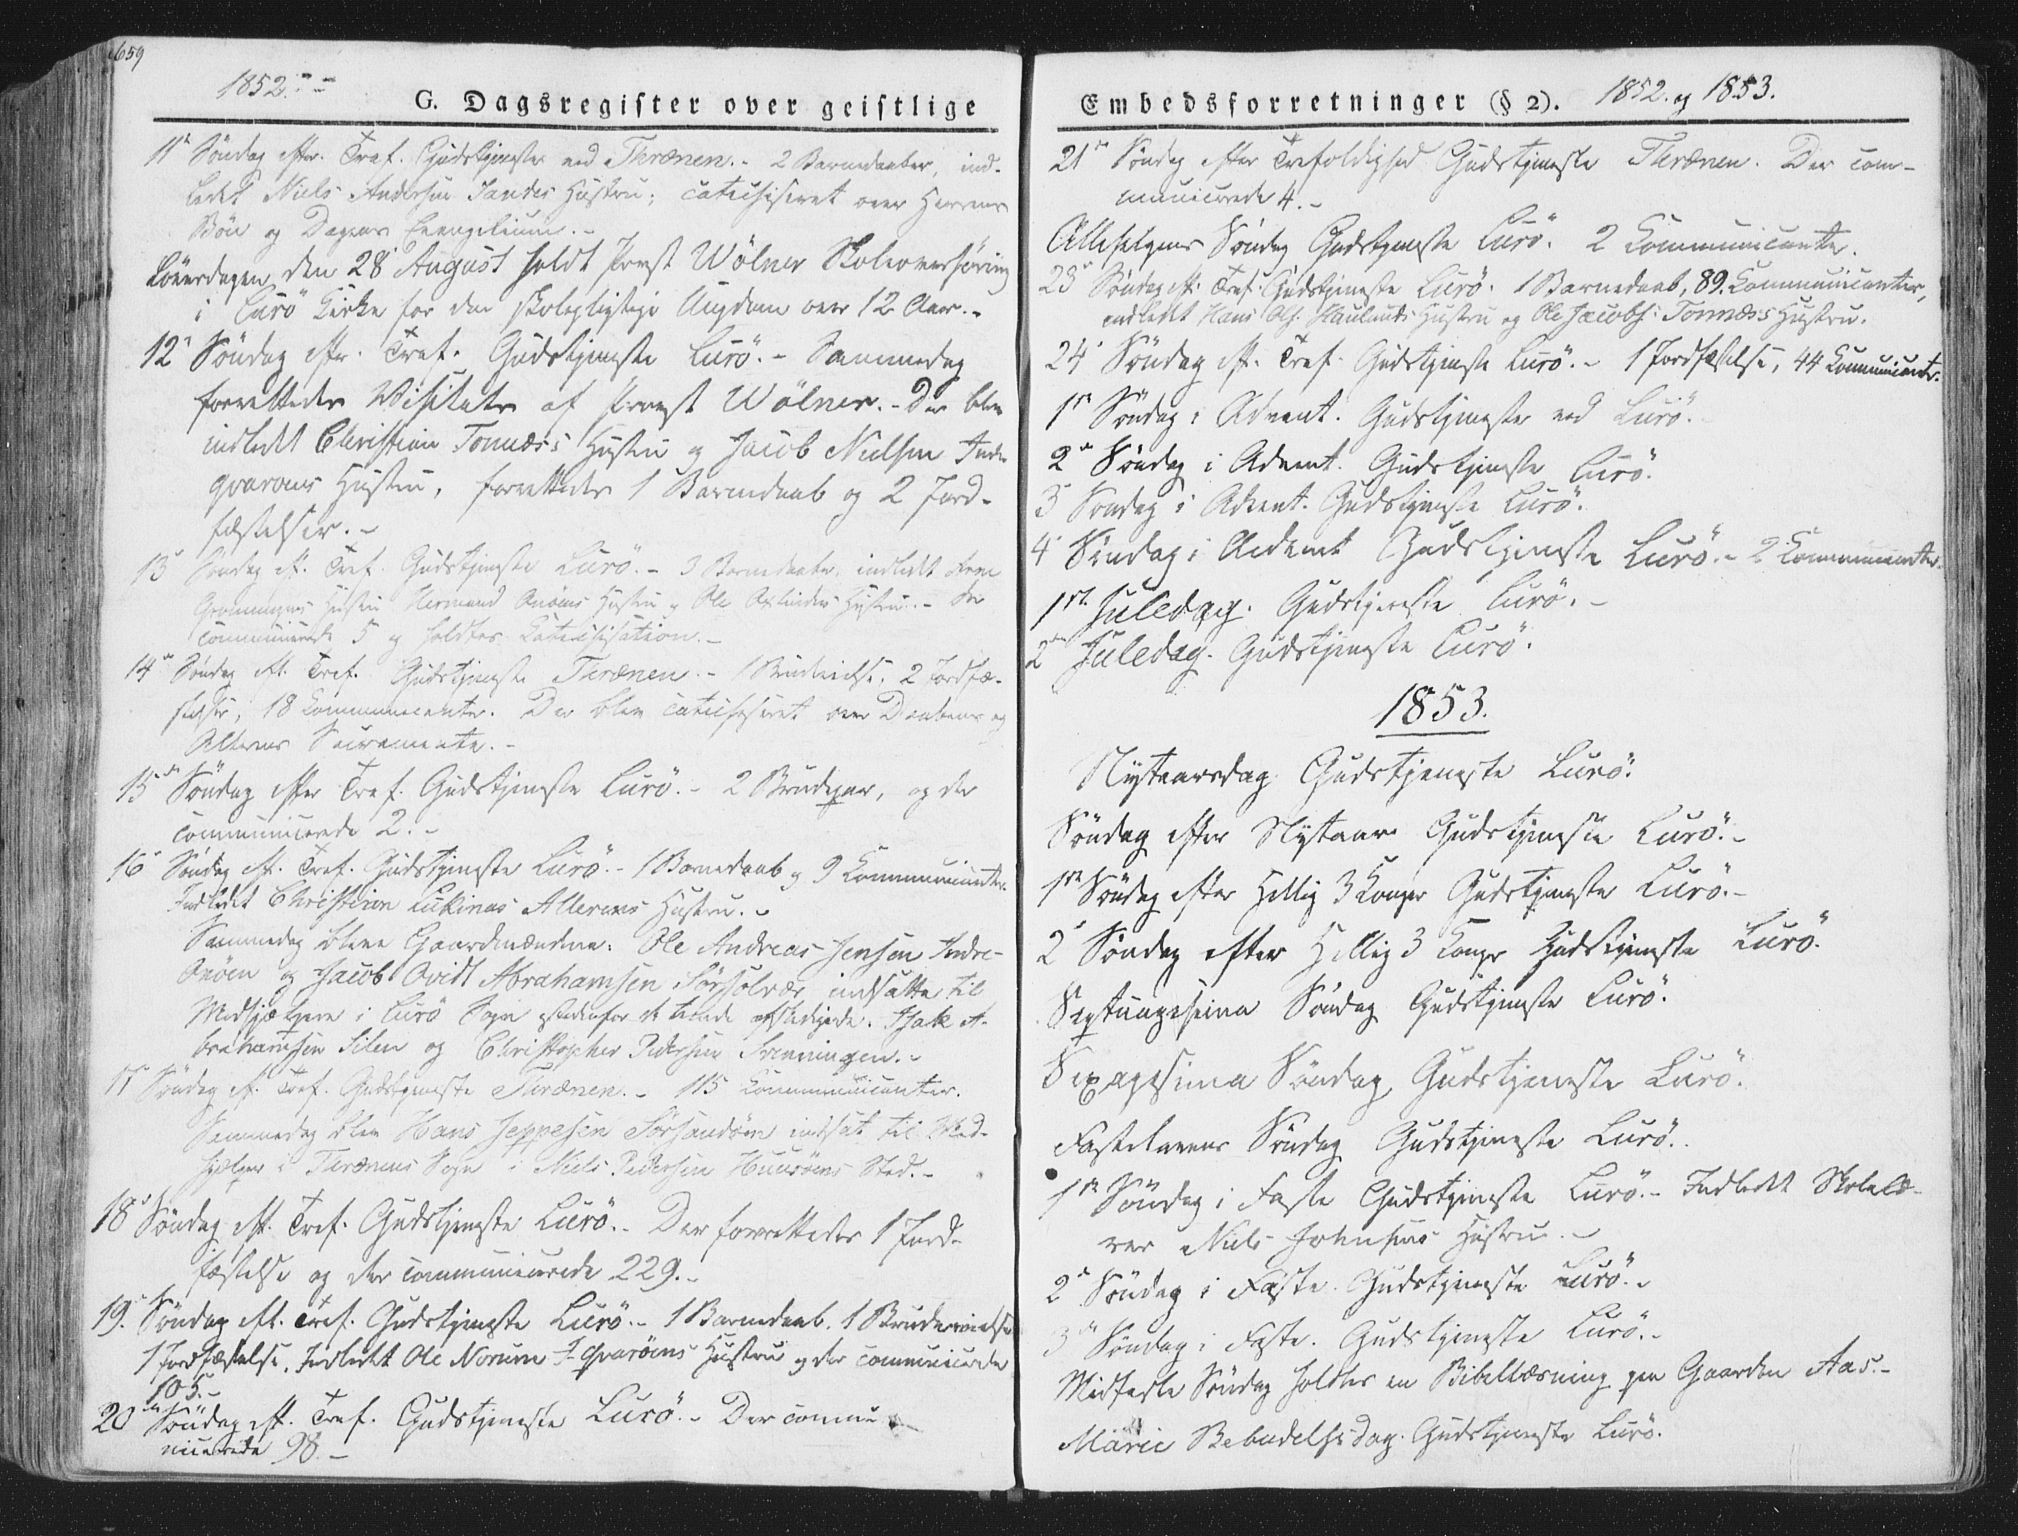 659
1852.
G. Dagsregister over geistlige
11te Søndag efter Tref. Gudstjeneste ved Thrænen. - 2 Barnedaaber, ind-
ledet Niels Andersen Sandes Hustru; catechiseret over Herrens
Bøn og Dagens Evangelium. -
Løverdagen den 28 August holdt Provst Wölner Skoleoverhøring
i Lurö Kirke for den skolepligtige Ungdom over 12 Aar. -
12te Søndag efter Tref. Gudstjeneste Lurö. - Sammedag
forrettedes Visitats af Provst Wölner. - Der blev
indledet Christian Tonnæs's Hustru og Jacob Nielsen Indre
Qvaröens Hustru, forrettedes 1 Barnedaab og 2 Jord-
fæstelser. -
13 Søndag eft. Tref. Gudstjeneste Lurö. - 3 Barnedaaber, indledet
Hustru Hermand Anöens Hustru og Ole Hustru. - Der
communicerede 5 og holdtes Katechisation. -
14de Søndag eft. Tref. Gudstjeneste Thrænen. - 1 Brudevielse, 2 Jordfæ-
stelser, 18 Communicanter. Der blev catechiseret over Daabens og
Alterens Sacramente. -
15de Søndag efter Tref. Gudstjeneste Lurö. - 2 Brudepar, og der
communicerede 2. -
16 Søndag eft. Tref. Gudstjeneste Lurö. - 1 Barnedaab og 9 Communicanter.
Indledet Christian Lukinas Allerens Hustru. -
Sammedag bleve Gaardmændene: Ole Andreas Jensen Indre-
Qvöen og Jacob Ovidt Abrahamsen Sørsolvær indsatte til
Medhjælpere i Lurö Sogn istedenfor de tvende afskedigede. Isak A-
brahamsen Silen og Christopher Pedersen Svenningen. -
17 Søndag eft. Tref. Gudstjeneste Thrænen. - 115 Communicanter.
Sammedag blev Hans Jeppesen Sørsandöen indsat til Med-
hjælper i Thrænens Sogn i Niels Pedersen Huusöens Sted. -
18de Søndag eft. Tref. Gudstjeneste Lurö. - Der forrettedes 1 Jord-
fæstelse og der communicerede 229. -
19. Søndag eft. Tref. Gudstjeneste Lurö. - 1 Barnedaab. 1 Brudevielse
1 Jordfæstelse. Indledet Ole Norum I. Qvaröens Hustru og der communicerede
105. -
20de Søndag eft. Tref. Gudstjeneste Lurö. - Der commu-
nicerede 98. -
Embedsforretninger (§ 2). 1852. og 1853.
21de Søndag efter Trefoldighed Gudstjeneste Thrænen. Der com-
municerede 4. -
Allehelgens Søndag Gudstjeneste Lurö. 2 Communicanter.
23de Søndag eft. Tref. Gudstjeneste Lurö. 1 Barnedaab, 89. Communicanter,
indledet Hans Ols. Haulunds Hustru og Ole Jacobs: Tonnæs's Hustru.
24 Søndag eft. Tref. Gudstjeneste Lurö. - 1 Jordfæstelse, 44 Communicanter.
1ste Søndag i Advent. Gudstjeneste ved Lurö.
2den Søndag i Advent. Gudstjeneste Lurö.
3 Søndag i Advent. Gudstjeneste Lurö.
4 Søndag i Advent Gudstjeneste Lurö. - 2 Communicanter.
1ste Juledag. Gudstjeneste Lurö. -
2den Juledag. Gudstjeneste Lurö.
1853.
Nytaarsdag Gudstjeneste Lurö.
Søndag efter Nytaar Gudstjeneste Lurö. -
1ste Søndag efter Hellig 3 Konger Gudstjeneste Lurö. -
2 Søndag efter Hellig 3 Konger Gudstjeneste Lurö.
Septuagesima Søndag Gudstjeneste Lurö.
Sexagesima Søndag Gudstjeneste Lurö.
Fastelavens Søndag Gudstjeneste Lurö.
1ste Søndag i Faste Gudstjeneste Lurö. - Indledet Skolelæ-
rer Niels Johnsens Hustru. -
2den Søndag i Faste. Gudstjeneste Lurö. -
3die Søndag i Faste. Gudstjeneste Lurö. -
Midfaste Søndag holdtes en Bibellæsning paa Gaarden Aas. -
Mariæ Bebudelsesdag. Gudstjeneste Lurö.